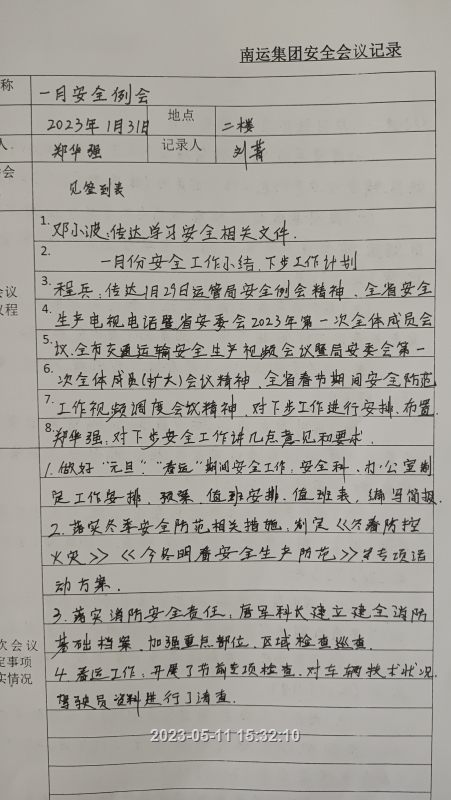 南运集团安全会议记录
称 一月安全例会
2023年1月31日 地点 二楼
人 郑华强 记录人 刘菁
会 见签到表
1. 邓小波:传达学习安全相关文件.
2. 一月份安全工作小结、下步工作计划
会议 3. 程兵:传达1月29日运管局安全例会精神、全省安全
议程 4. 生产电视电话暨省安委会2023年第一次全体成员会
5. 议、全市交通运输安全生产视频会议暨局安委会第一
6. 次全体成员(扩大)会议精神、全省春节期间安全防范
7. 工作视频调度会议精神、对下步工作进行安排、布置.
8. 郑华强:对下步安全工作讲几点意见和要求.
1. 做好"元旦""春运"期间安全工作:安全科、办公室制
定工作安排、预案、值班安排、值班表,编写简报.
2. 落实冬季安全防范相关措施:制定《冬春防控
火灾》《今冬明春安全生产防范》等专项活
动方案.
3. 落实消防安全责任:唐军科长建立建全消防
次会议 基础档案、加强重点部位、区域检查巡查.
定事项 4. 春运工作:开展了节前专项检查、对车辆技术状况、
实情况 驾驶员资料进行了清查.
2023-05-11 15:32:10